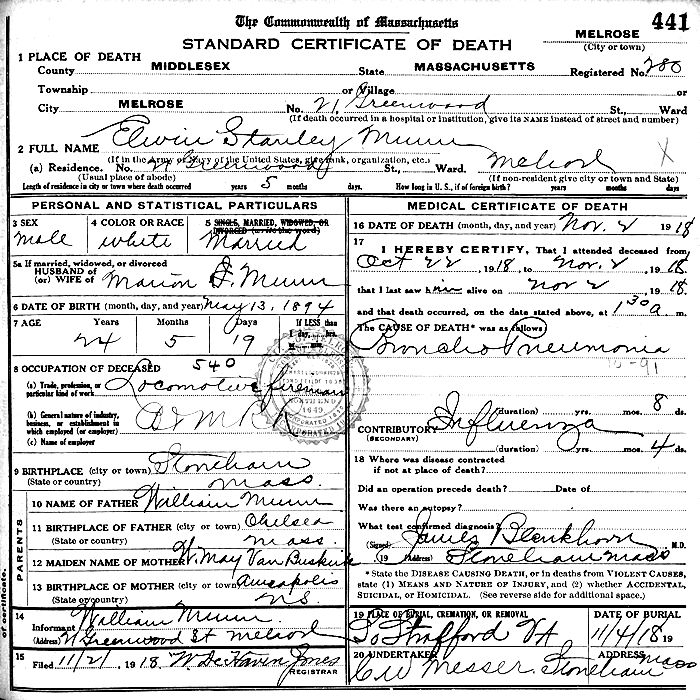 The Commonwealth of Massachusetts
441
STANDARD CERTIFICATE OF DEATH
MELROSE
(City or town)
1 PLACE OF DEATH
County MIDDLESEX State MASSACHUSETTS Registered No. 280
Township or Village or
City MELROSE No. 21 Greenwood St., Ward
(If death occurred in a hospital or institution, give its NAME instead of street and number)
2 FULL NAME Elwin Stanley Munn
(If in the Army or Navy of the United States, give rank, organization, etc.)
(a) Residence. No. 21 Greenwood St., Ward. Melrose X
(Usual place of abode) (If non-resident give city or town and State)
Length of residence in city or town where death occurred years 5 months days. How long in U.S., if of foreign birth? years months days
PERSONAL AND STATISTICAL PARTICULARS
3 SEX 4 COLOR OR RACE 5 SINGLE, MARRIED, WIDOWED, OR DIVORCED (write the word)
Male White Married
5a If married, widowed, or divorced
HUSBAND of
(or) WIFE of Marion F. Munn
6 DATE OF BIRTH (month, day, and year) May 13, 1894
7 AGE Years Months Days If LESS than
1 day, hrs.
24 5 19 or min.
8 OCCUPATION OF DECEASED 540
(a) Trade, profession, or
particular kind of work Locomotive fireman
(b) General nature of industry,
business, or establishment in
which employed (or employer) B & M RR
(c) Name of employer
9 BIRTHPLACE (city or town) Stoneham
(State or country) Mass.
PARENTS
10 NAME OF FATHER William Munn
11 BIRTHPLACE OF FATHER (city or town) Chelsea
(State or country) Mass.
12 MAIDEN NAME OF MOTHER W. May Van Buskirk
13 BIRTHPLACE OF MOTHER (city or town) Annapolis
(State or country) N S
14
Informant William Munn
(Address) 21 Greenwood St Melrose
15
Filed 11/21, 1918. W. De Haven Jones
REGISTRAR
of certificate.
MEDICAL CERTIFICATE OF DEATH
16 DATE OF DEATH (month, day, and year) Nov. 2 1918
17
I HEREBY CERTIFY, That I attended deceased from
Oct 22, 1918, to Nov. 2, 1918.
that I last saw him alive on Nov 2, 1918.
and that death occurred, on the date stated above, at 1 30 a m.
The CAUSE OF DEATH* was as follows
Broncho Pneumonia
-91
(duration) yrs. mos. 8 ds.
CONTRIBUTORY Influenza
(SECONDARY)
(duration) yrs. mos. 4 ds.
18 Where was disease contracted
if not at place of death?
Did an operation precede death? Date of
Was there an autopsy?
What test confirmed diagnosis?
(Signed) James Blenkhorn M.D.
, 19 (Address) Stoneham Mass
* State the DISEASE CAUSING DEATH, or in deaths from VIOLENT CAUSES,
state (1) MEANS AND NATURE OF INJURY, and (2) whether ACCIDENTAL,
SUICIDAL, or HOMICIDAL. (See reverse side for additional space.)
19 PLACE OF BURIAL, CREMATION, OR REMOVAL DATE OF BURIAL
So Strafford VA 11/4/18 19
20 UNDERTAKER ADDRESS
C W Messer Stoneham Mass